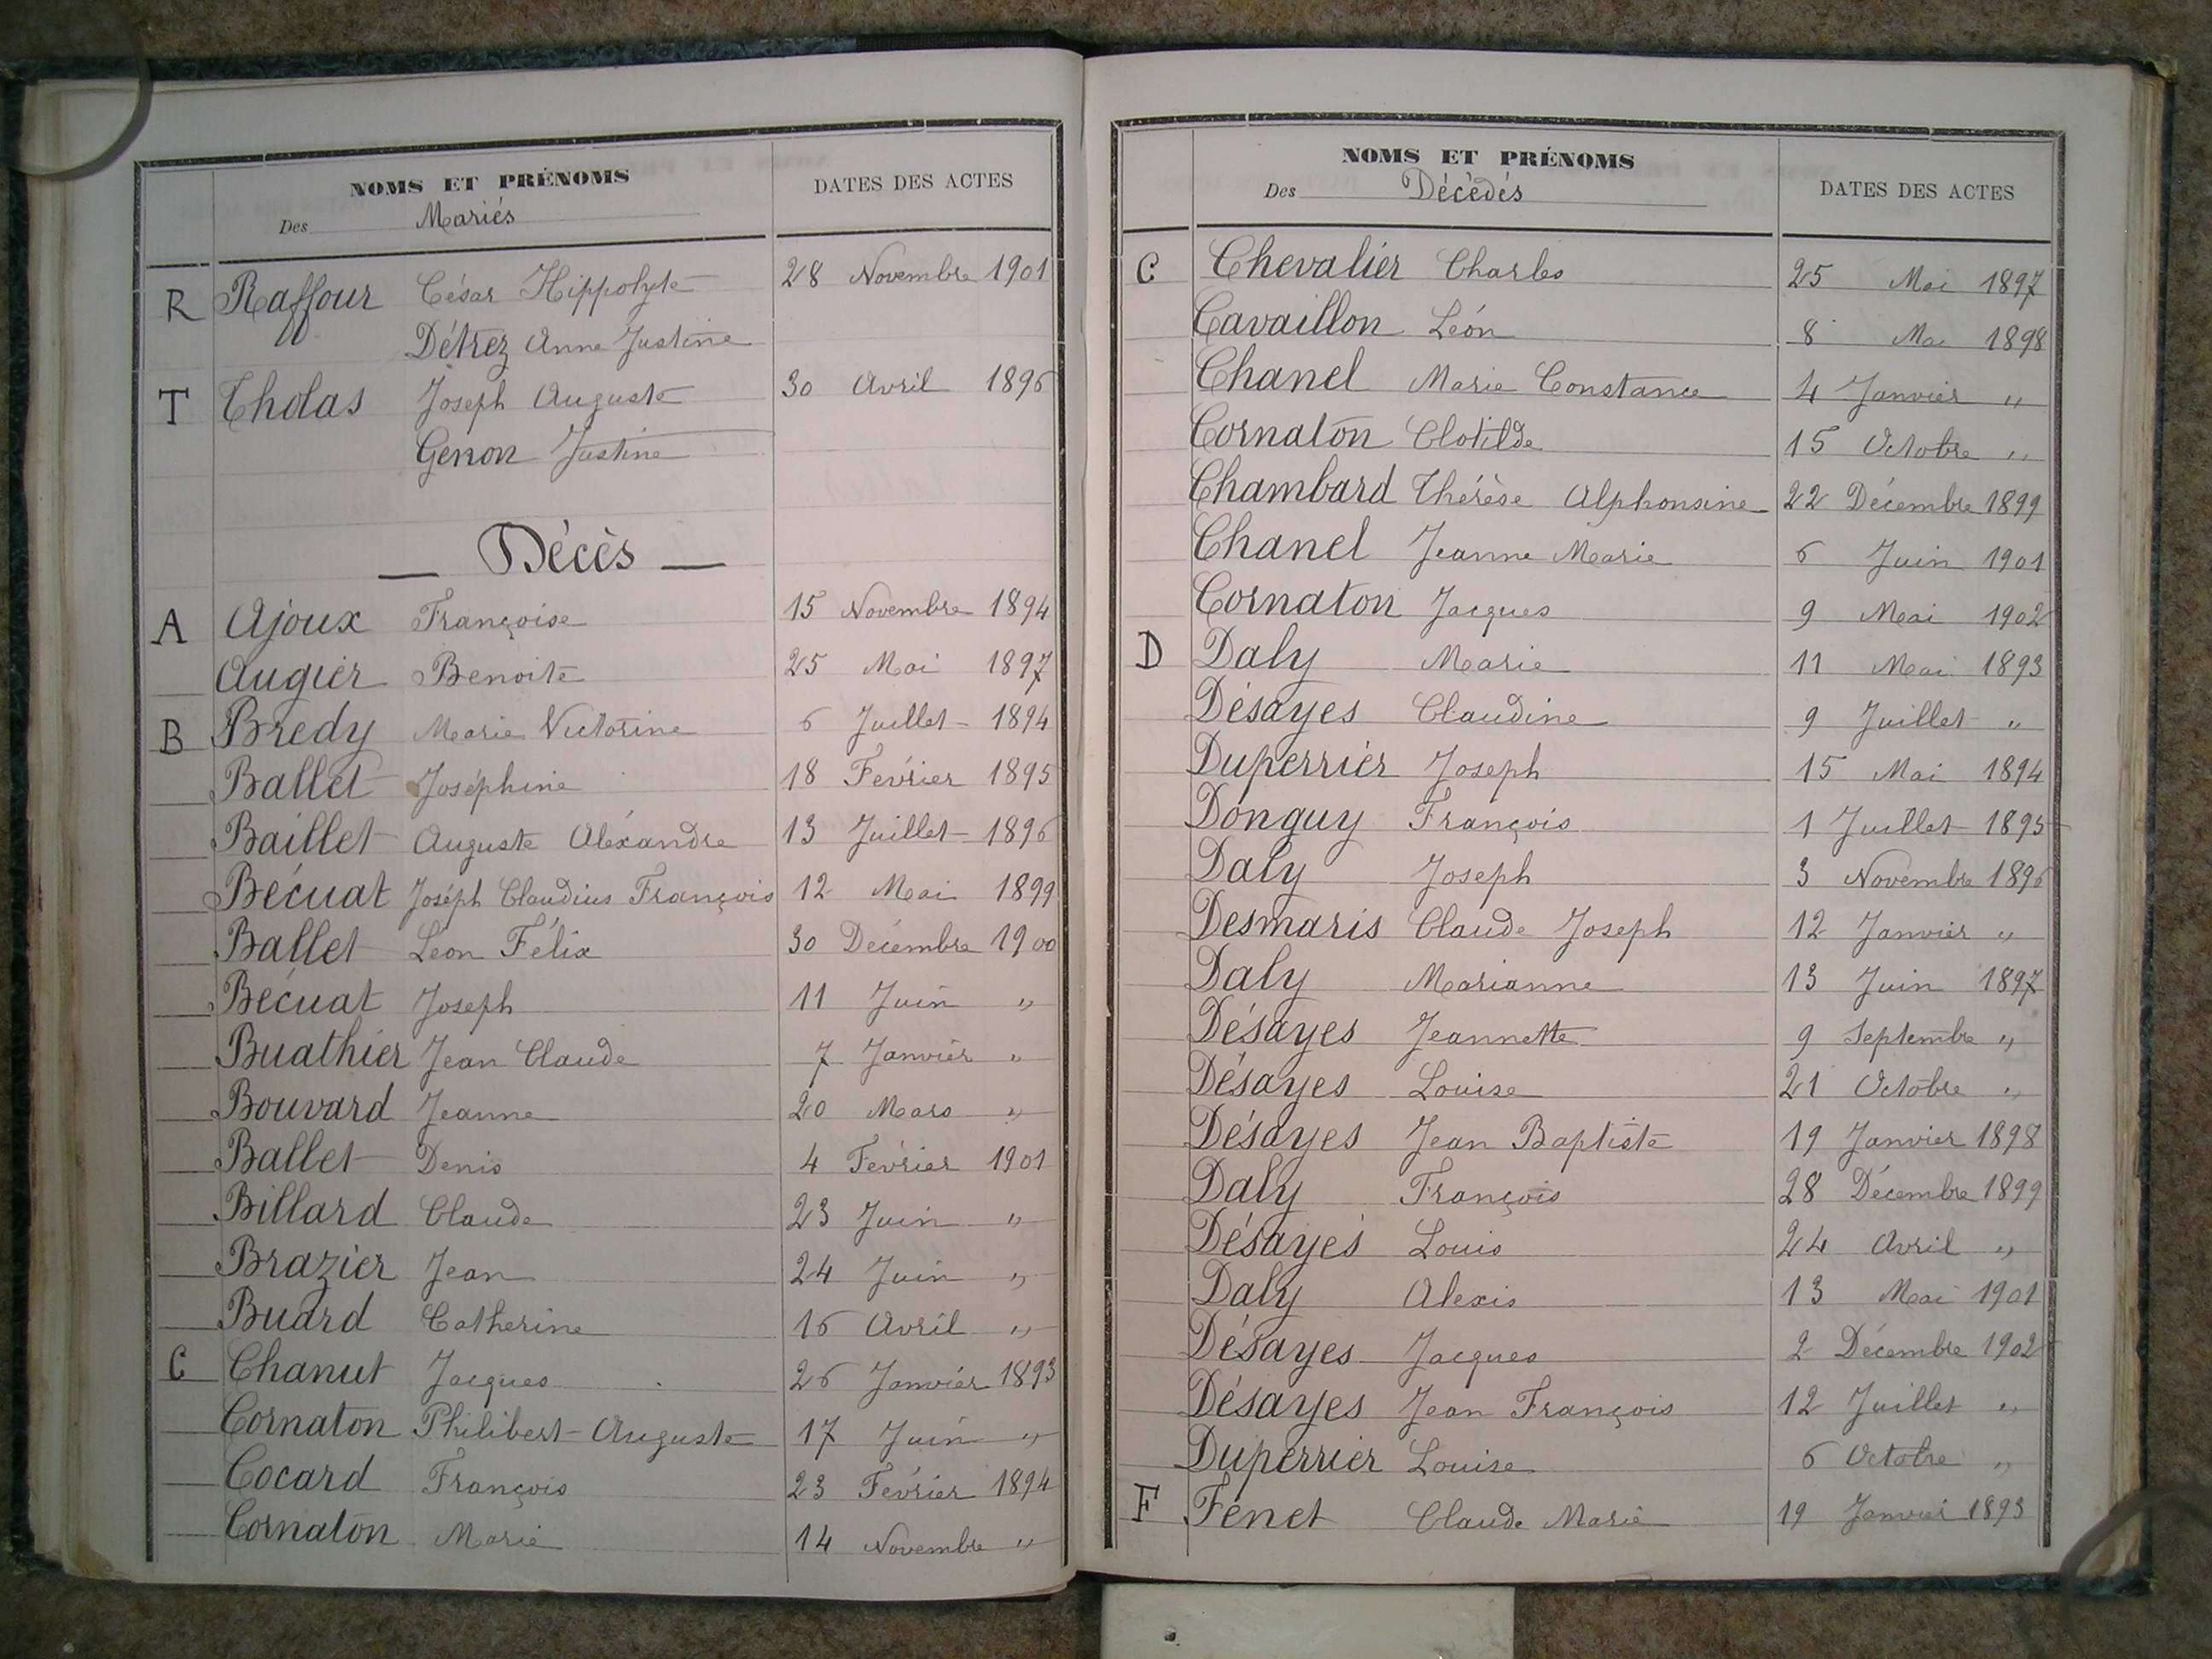 NOMS ET PRÉNOMS
DATES DES ACTES
Des Mariés
R Raffour César Hippolyte 28 Novembre 1901
Détrez Anne Justine
T Tholas Joseph Auguste 30 Avril 1896
Genon Justine
— Décès —
A Ajoux Françoise 15 Novembre 1894
Augier Benoite 25 Mai 1897
B Bredy Marie Victorine 6 Juillet 1894
Ballet Joséphine 18 Février 1895
Baillet Auguste Aléxandre 13 Juillet 1896
Bécuat Joséph Claudius François 12 Mai 1899
Ballet Léon Félix 30 Décembre 1900
Bécuat Joseph 11 Juin "
Buathier Jean Claude 7 Janvier "
Bouvard Jeanne 20 Mars "
Ballet Denis 4 Février 1901
Billard Claude 23 Juin "
Brazier Jean 24 Juin "
Buard Catherine 16 Avril "
C Chanut Jacques 26 Janvier 1893
Cornaton Philibert Auguste 17 Juin "
Cocard François 23 Février 1894
Cornaton Marie 14 Novembre "
NOMS ET PRÉNOMS
DATES DES ACTES
Des Décèdés
C Chevalier Charles 25 Mai 1897
Cavaillon Léon 8 Mai 1898
Chanel Marie Constance 4 Janvier "
Cornaton Clotilde 15 Octobre "
Chambard Thérèse Alphonsine 22 Décembre 1899
Chanel Jeanne Marie 6 Juin 1901
Cornaton Jacques 9 Mai 1902
D Daly Marie 11 Mai 1893
Désayes Claudine 9 Juillet "
Duperrier Joseph 15 Mai 1894
Donguy François 1 Juillet 1895
Daly Joseph 3 Novembre 1896
Desmaris Claude Joseph 12 Janvier "
Daly Marianne 13 Juin 1897
Désayes Jeannette 9 Septembre "
Désayes Louise 21 Octobre "
Désayes Jean Baptiste 19 Janvier 1898
Daly François 28 Décembre 1899
Désayes Louis 24 Avril "
Daly Alexis 13 Mai 1901
Désayes Jacques 2 Décembre 1902
Désayes Jean François 12 Juillet "
Duperrier Louise 6 Octobre "
F Fenet Claude Marie 19 Janvier 1893